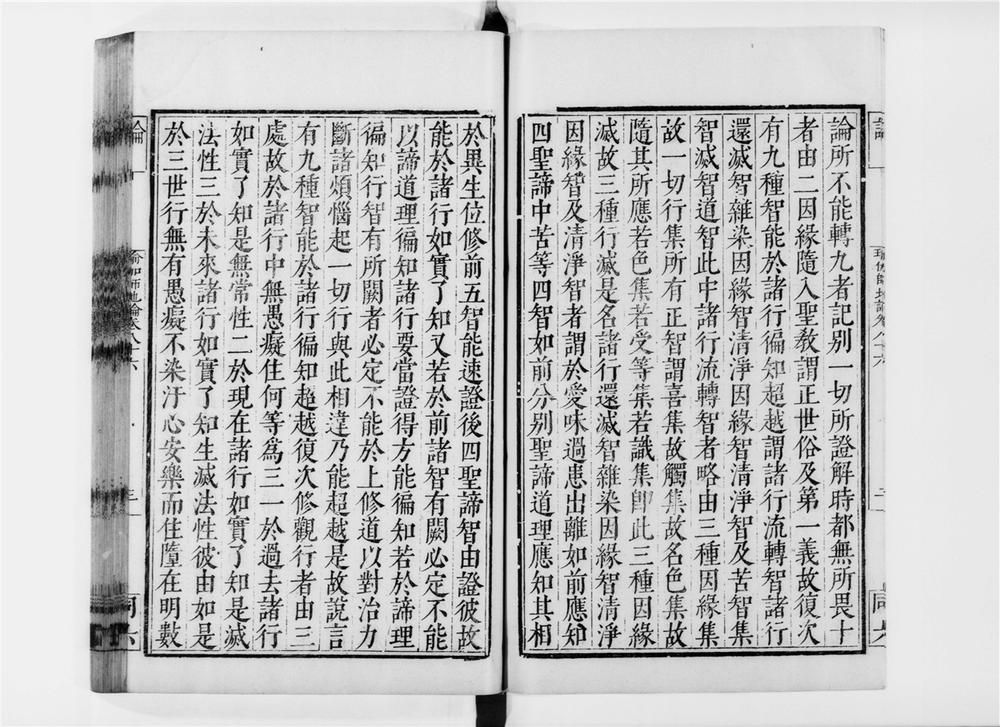 論所不能轉九者記別一切所證解時都無所畏十
者由二因緣隨入聖教謂正世俗及第一義故復次
有九種智能於諸行徧知超越謂諸行流轉智諸行
還滅智雜染因緣智清淨因緣智清淨智及苦智集
智滅智道智此中諸行流轉智者略由三種因緣集
故一切行集所有正智謂喜集故觸集故名色集故
隨其所應若色集若受等集若識集卽此三種因緣
滅故三種行滅是名諸行還滅智雜染因緣智清淨
因緣智及清淨智者謂於愛味過患出離如前應知
四聖諦中苦等四智如前分別聖諦道理應知其相
於異生位修前五智能速證後四聖諦智由證彼故
能於諸行如實了知又若於前諸智有闕必定不能
以諦道理徧知諸行要當證得方能徧知若於諦理
徧知行智有所闕者必定不能於上修道以對治力
斷諸煩惱起一切行與此相違乃能超越是故說言
有九種智能於諸行徧知超越復次修觀行者由三
處故於諸行中無愚癡住何等爲三一於過去諸行
如實了知是無常性二於現在諸行如實了知是滅
法性三於未來諸行如實了知生滅法性彼由如是
於三世行無有愚癡不染汙心安樂而住墮在明數
論
瑜伽師地論卷八十六
三
同六